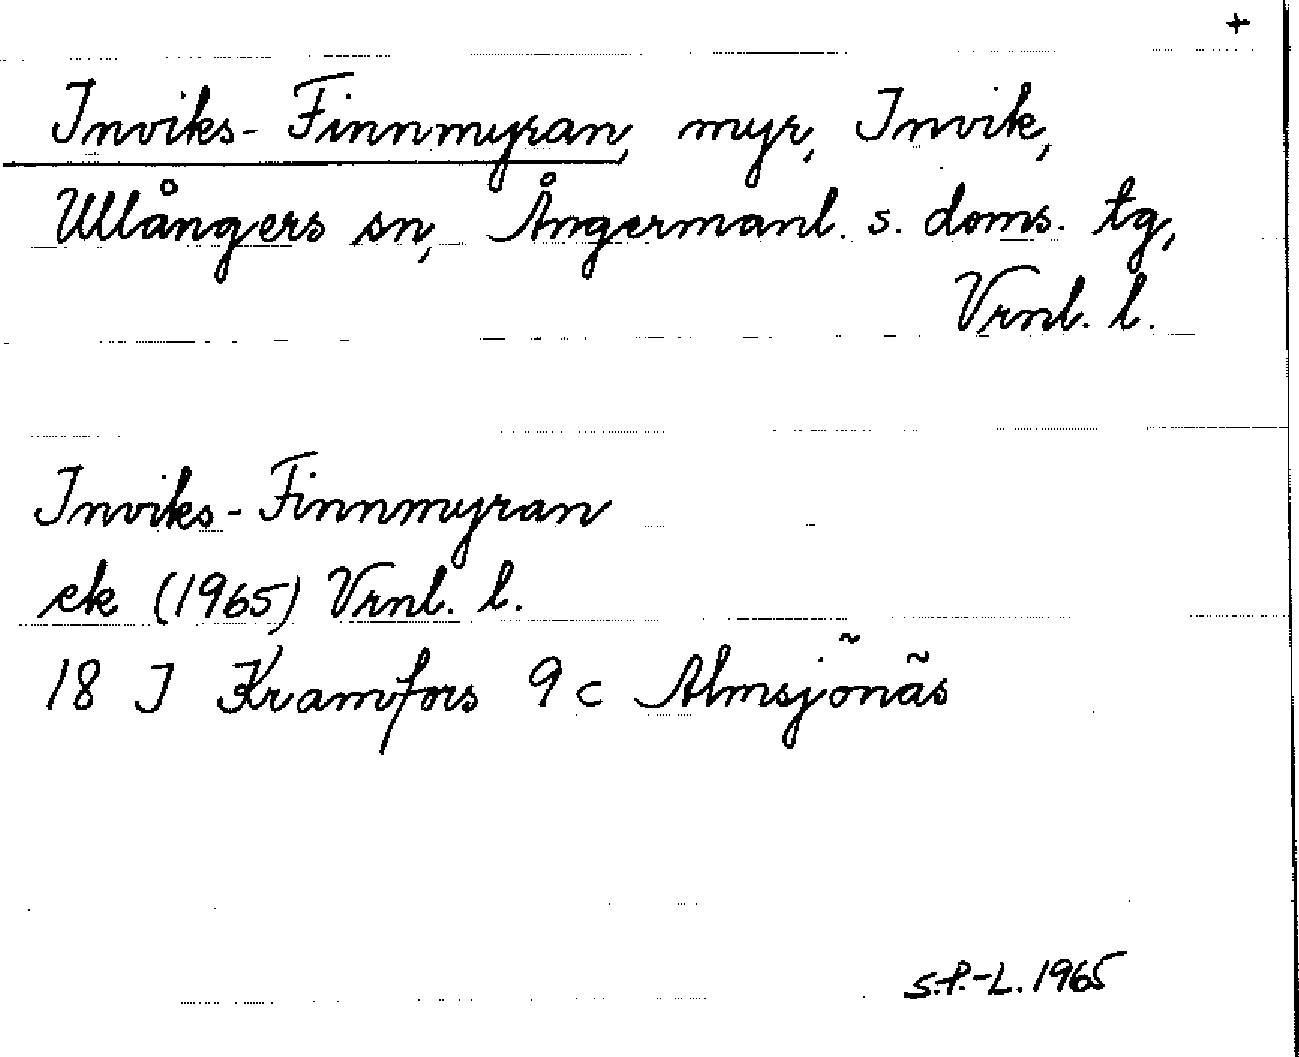 +
Inviks-Finnmyran, myr, Invik,
Ullångers sn, Ångermanl. s. doms. tg,
Vrnl. l.
Inviks-Finnmyran
ek (1965) Vrnl. l.
18 I Kramfors 9 c Almsjönäs
S.P.-L. 1965